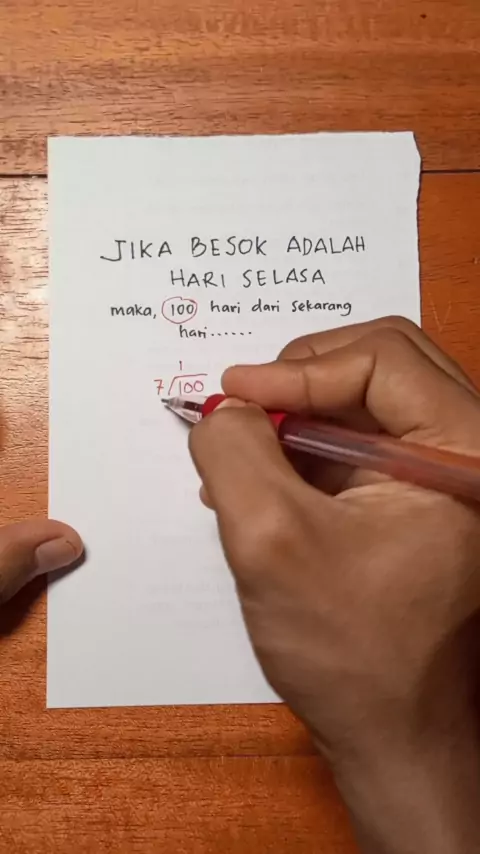 JIKA BESOK ADALAH
HARI SELASA
maka, 100 hari dari sekarang
hari......
1
7/100